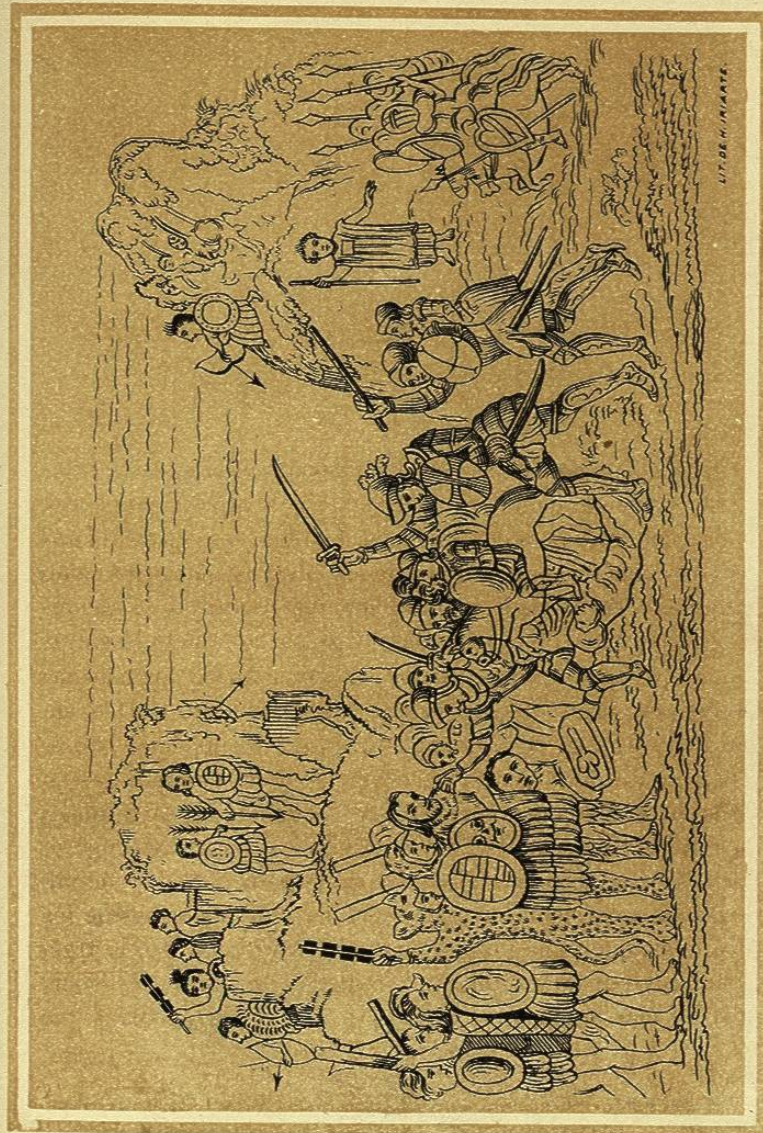 LIT. DE H. IRIARTE.